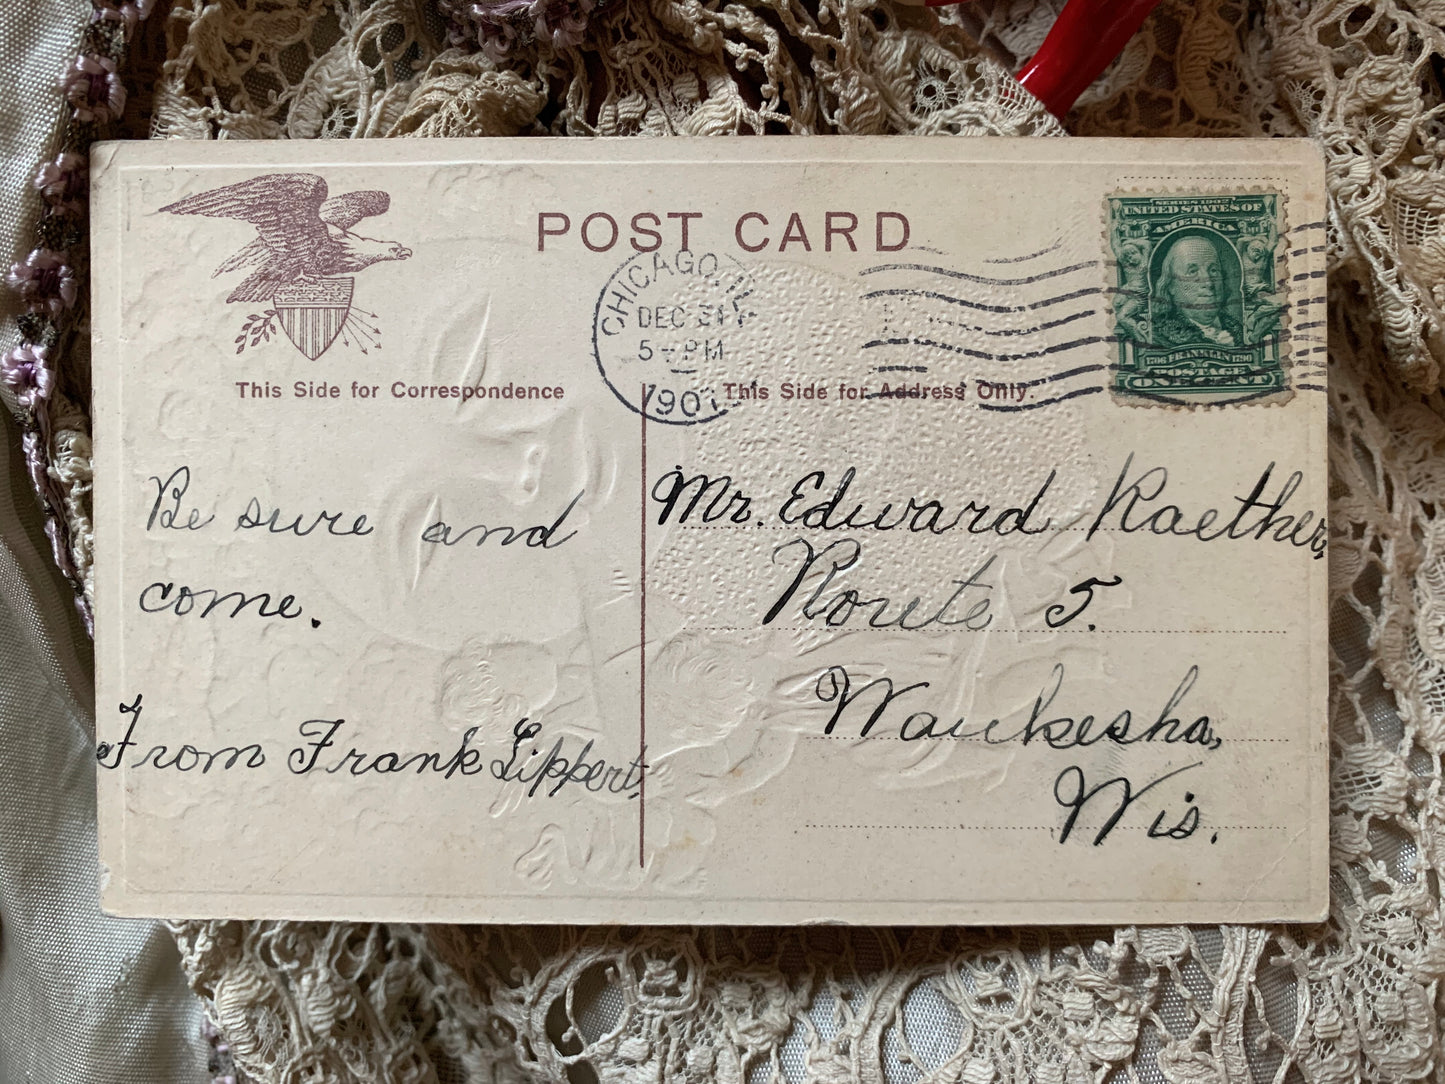 POST CARD
CHICAGO, ILL.
DEC 31
5 - PM
1907
SERIES 1902
UNITED STATES OF
AMERICA
1706 FRANKLIN 1790
1 POSTAGE 1
ONE CENT
This Side for Correspondence
This Side for Address Only.
Be sure and
come.
From Frank Lippert,
Mr. Edward Raether,
Route 5.
Waukesha,
Wis.